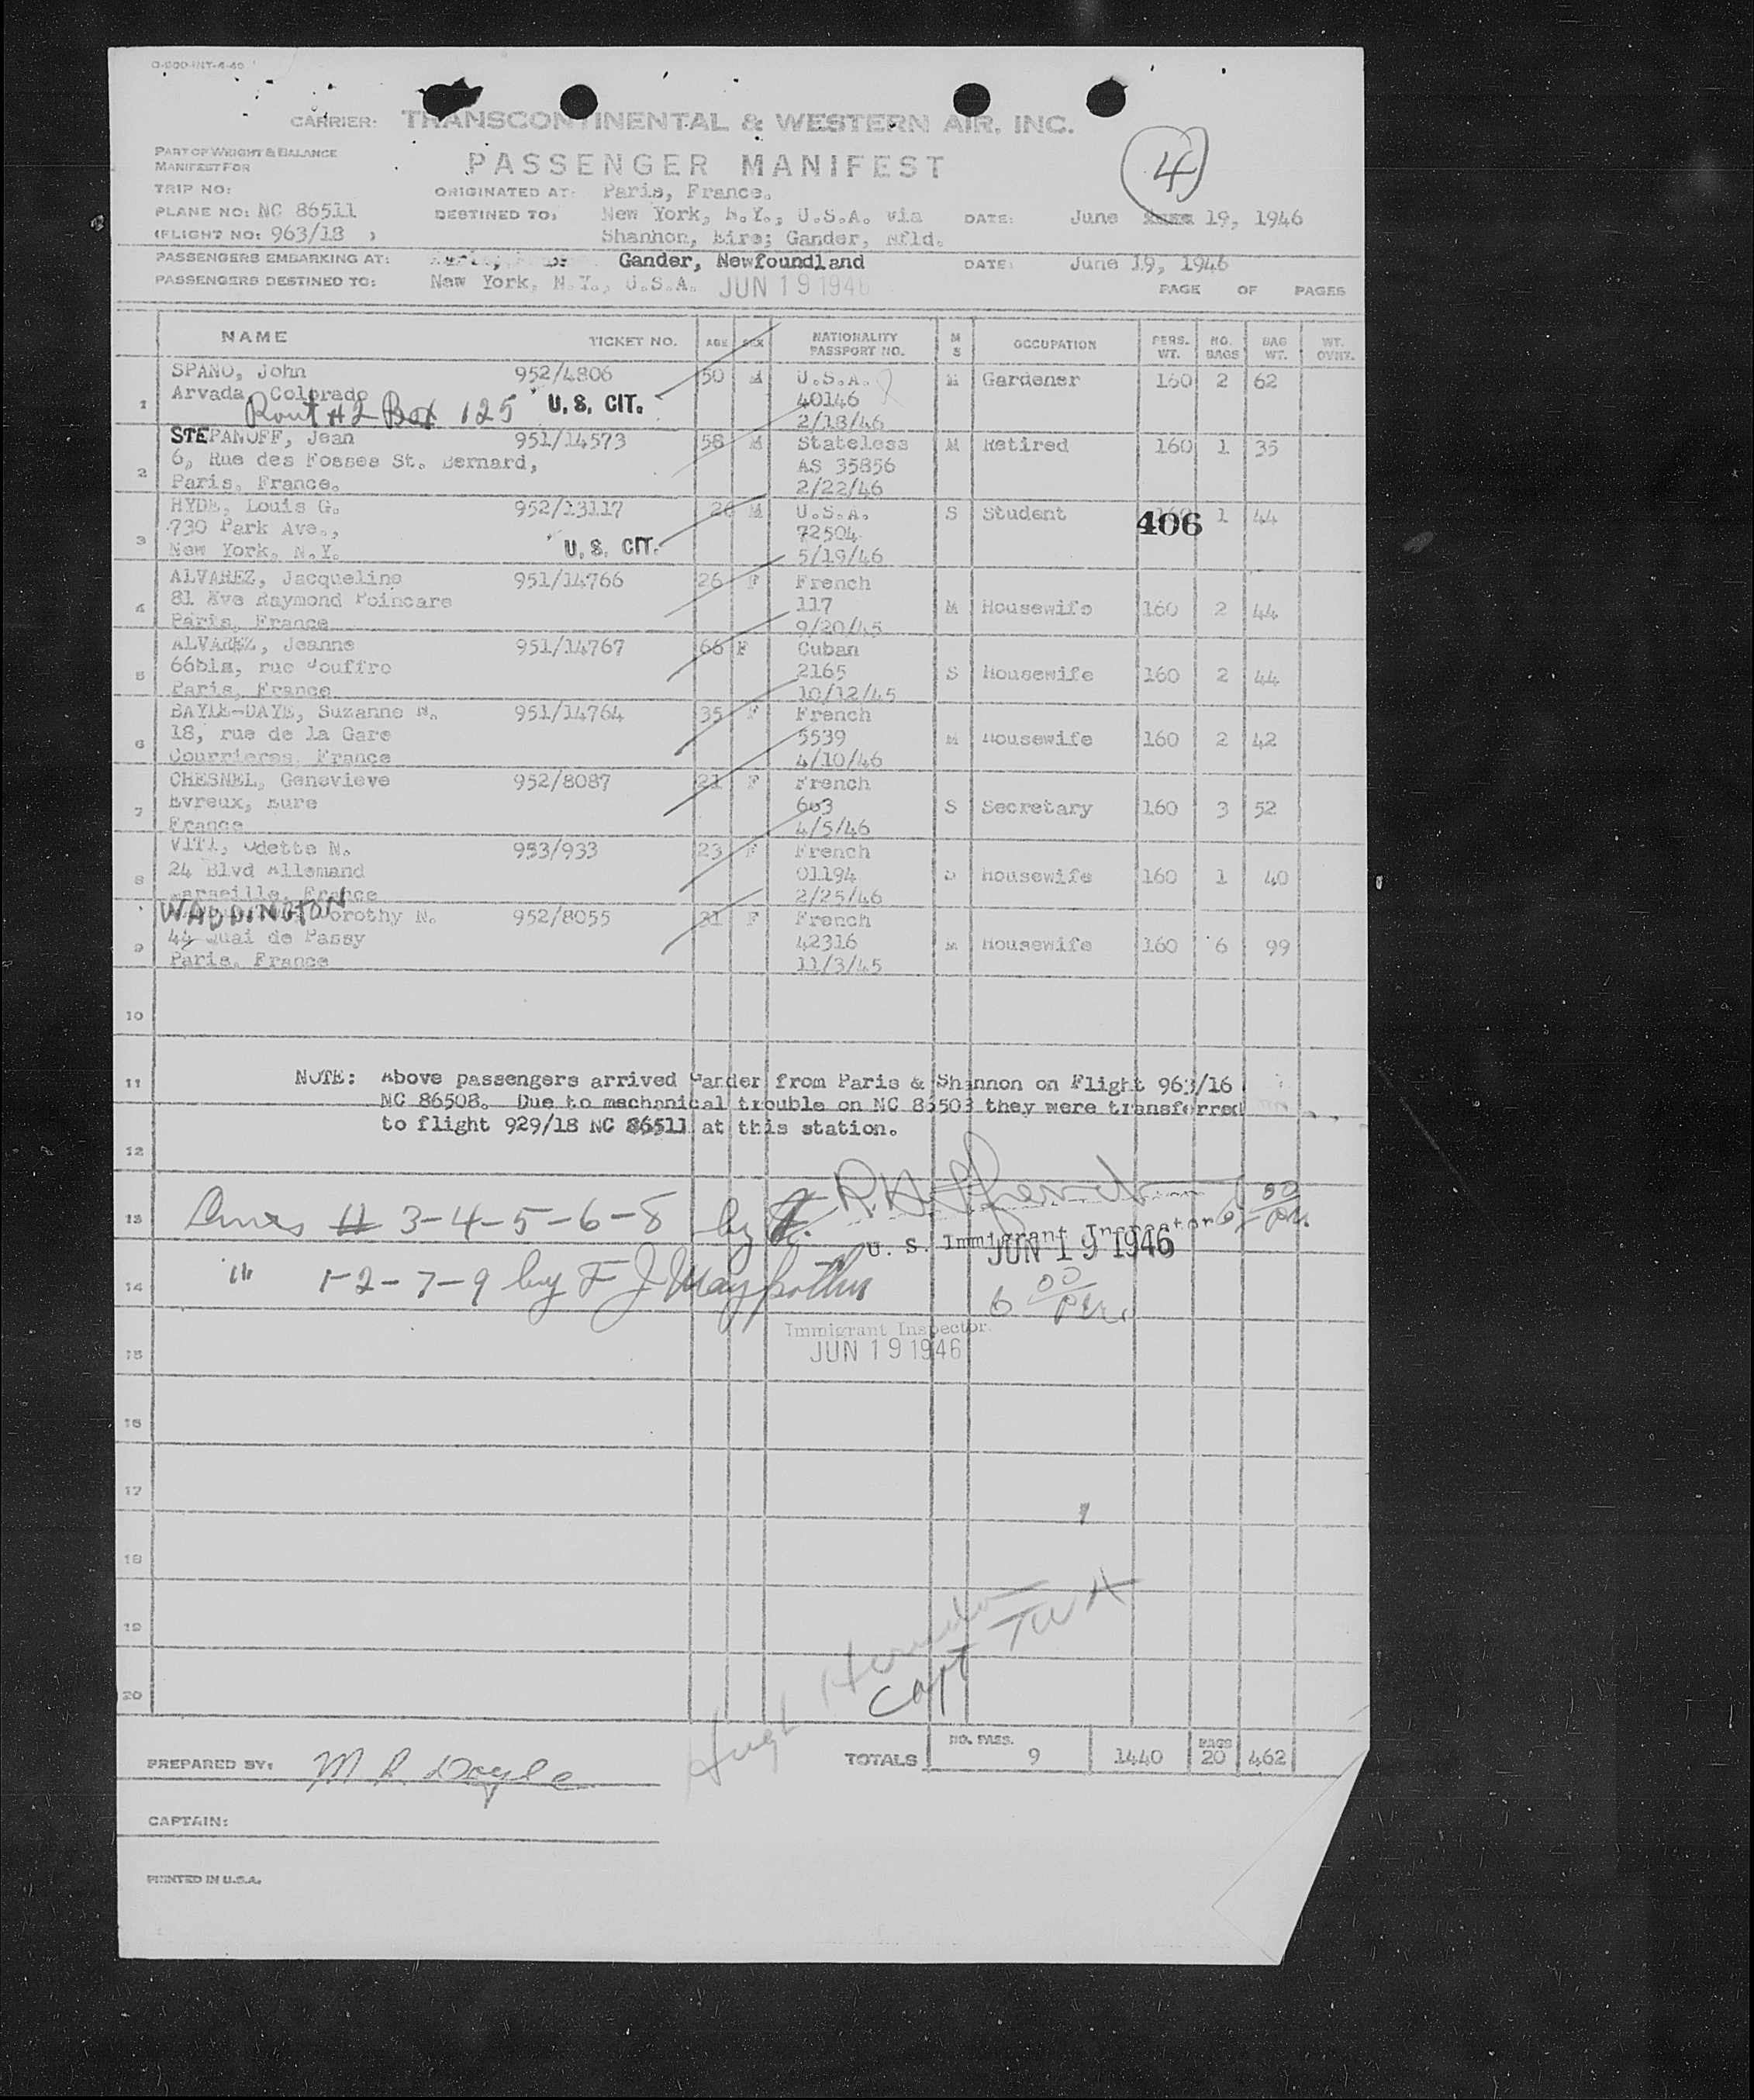 O-200-INT-4-46
CARRIER: TRANSCONTINENTAL & WESTERN AIR, INC.
PART OF WEIGHT & BALANCE
MANIFEST FOR
PASSENGER MANIFEST
4
TRIP NO: ORIGINATED AT: Paris, France.
PLANE NO: NC 86511 DESTINED TO: New York, N.Y., U.S.A. via DATE: June 19, 1946
(FLIGHT NO: 963/18 ) Shannon, Eire; Gander, Nfld.
PASSENGERS EMBARKING AT: Gander, Newfoundland DATE: June 19, 1946
PASSENGERS DESTINED TO: New York, N.Y., U.S.A. JUN 19 1946 PAGE OF PAGES
NAME TICKET NO. AGE SEX NATIONALITY PASSPORT NO. M S OCCUPATION PERS. WT. NO. BAGS BAG WT. WT. OVHT.
SPANO, John 952/4806 50 M U.S.A. M Gardener 160 2 62
Arvada, Colorado U. S. CIT. 40146
1 Rout #2 Box 125 2/18/46
STEPANOFF, Jean 951/14573 58 M Stateless M Retired 160 1 35
6, Rue des Fosses St. Bernard, AS 35856
2 Paris, France. 2/22/46
HYDE, Louis G. 952/13117 M U.S.A. S Student 406 1 44
730 Park Ave., 72504
3 New York, N.Y. U. S. CIT. 5/19/46
ALVAREZ, Jacqueline 951/14766 26 F French
4 81 Ave Raymond Poincare 117 M Housewife 160 2 44
Paris, France 9/20/45
ALVAREZ, Jeanne 951/14767 66 F Cuban
5 66bis, rue Jouffro 2165 S Housewife 160 2 44
Paris, France 10/12/45
BAYLE-DAYE, Suzanne N. 951/14764 35 F French
6 18, rue de la Gare 5539 M Housewife 160 2 42
Courrieres, France 4/10/46
CHESNEL, Genevieve 952/8087 21 F French
7 Evreux, Eure 603 S Secretary 160 3 52
France 4/5/46
VITI, Odette N. 953/933 23 F French
8 24 Blvd Allemand 01194 housewife 160 1 40
Marseille, France 2/25/46
WADDINGTON Dorothy N. 952/8055 31 F French
9 44 Quai de Passy 42316 M Housewife 160 6 99
Paris, France 11/3/45
10
11 NOTE: Above passengers arrived Gander from Paris & Shannon on Flight 963/16
NC 86508. Due to mechanical trouble on NC 86503 they were transferred
to flight 929/18 NC 86511 at this station.
12
13 # 3-4-5-6-8 by 6 00 PM.
U. S. Immigrant Inspector
JUN 19 1946
14 " 1-2-7-9 by F J 6 00 PM.
Immigrant Inspector
15 JUN 19 1946
16
17
18
19
20
Hugh
CAPT TWA
PREPARED BY: M R Doyle TOTALS NO. PASS. 9 1440 BAGS 20 462
CAPTAIN:
PRINTED IN U.S.A.